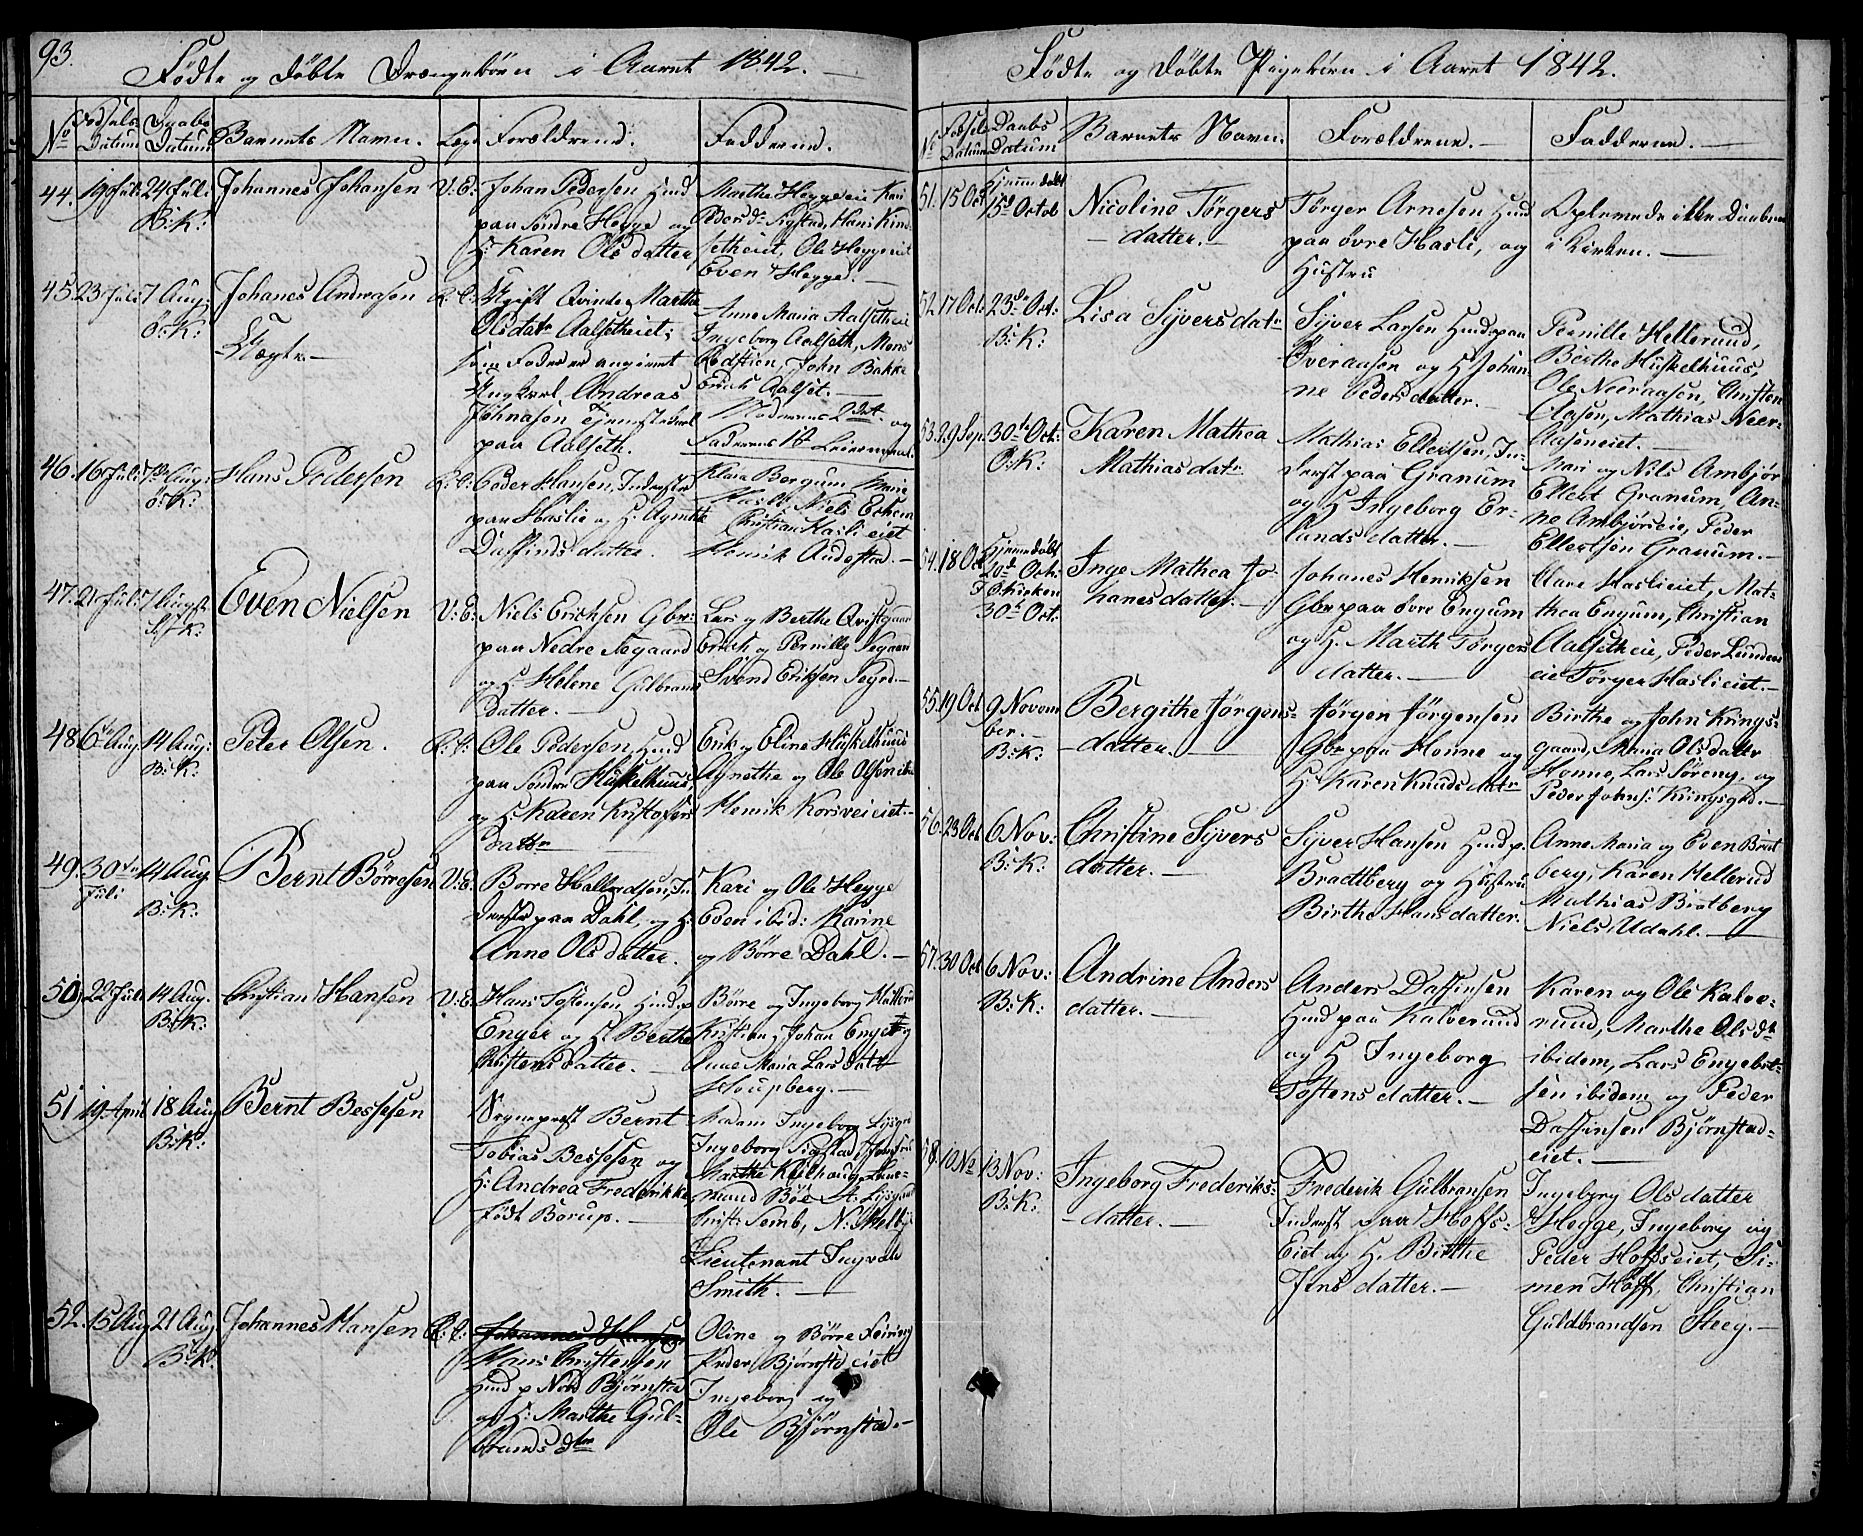 93.
Födte og döbte Drengebörn i Aaret 1842.
No Födsels Datum Daabs Datum Barnets Navn. Forældrene. Fadderne.
44. 19 Juli 24 Juli Johannes Johansen V: E: Johan Pedersen Huusd
B: K:
paa Söndre Hegge og
H: Karen Olsdatter
Marthe Heggeeie Kari
Pedersdr Sigstad, Hans
Ole Heggeeiet
Even Hegge.
45. 23 Juli 7 Aug: Johanes Andreasen
Uægte
Ugift Qvinde Marthe
Olsdatr Aalsetheiet;
som Fader er angivet
Ungkarl Andreas
paa Aalseth.
Anne Maria Aalsetheie
Ingeborg Aalseth, Mons
John Bakke
Erick Aalset.
Moderens 2det og
Faderens 1te Leiermaal.
46. 16 Juli 7de Aug: Hans Pedersen
Peder Hansen, Inderst
paa Haslie og H. Agnethe
datter.
Klara Bergum Marie
Hasli, Niels
Christian Haslieiet
Henrik
47. 21 Juli 7 Augst Even Nielsen V: E: Niels Ericksen Gbr:
paa Nedre Segaard
og H Helene Gulbrands
datter.
Lars og Berthe Qvistgaard
Erick og Pernille Segaard
Svend Eriksen Segrd
48. 6te Aug 14 Aug: Peter Olsen.
B: K:
Ole Pedersen, Huusd
paa Söndre Huskelhuus,
og H Karen Kristofers
dattr
Erik og Eline Huskelhuus
Agnethe og Ole Olsen ibid
Henrik Korsveieiet.
49. 30te Juli 14 Aug. Bernt Börresen V: E:
B: K:
Börre Hallvordsen, In
derst paa Dahl, og H:
Anne Olsdatter.
Kari og Ole Hegge
Even ibid: Karine
og Börre Dahl.
50. 22 Juli 14 Aug. Christian Hansen V: E:
B: K:
Hans Tostensen, Huusd p
Enger og H Berthe
Christensdatter.
Börre og Ingeborg
Kristian, Johan Enger og
Anne Maria Larsdatr
51 19 April 18 Aug Bernt Bessesen
B: K:
Sogneprest Bernt
Tobias Bessesen og
H: Andrea Frederikke
född Borup.
Madam Ingeborg Lysgd
Ingeborg Sigstad, Jomfru
Marthe Keilhaug,
Böe, A: Lysgaard
Semb, N: Melbye
Lieutenant Ingvald
Smith.
52. 15 Aug 21 Aug Johannes Hansen
B: K:
Johannes Hansen
Hans Christensen
Huusd p. Nord Björnstad
og H: Marthe Gul-
brands dtr
Oline og Börre
Peder Björnstadeiet
Ingeborg og
Ole Björnstad
Födte og döbte Pigebörn i Aaret 1842.
No Födsels Datum Daabs Datum Barnets Navn. Forældrene. Fadderne.
51. 15 Oct Hjemmedöbt 15d Octob Nicoline Törgers
datter.
Törger Arnesen Huusd
paa övre Hasli, og
Hustru
Oplevede ikke Daaben
i Kirken.
52. 17 Oct: 23de Oct: Lisa Syversdatr
B: K:
Syver Larsen Huusd paa
Överaasen og H Johan-
ne Pedersdatter.
Pernille Hellerud,
Berthe Huskelhuus,
Ole Neeraasen, Christen
Aasen, Mathias Neer-
Aaseneiet.
53. 29 Sep. 30te Oct: Karen Mathea
Mathiasdatr
Mathias Ellertsen, In-
derst paa Granum
og H Ingeborg Er-
landsdatter.
Mari og Nils Ambjör
Ellert Granum, An-
ne Ambjörseie, Peder
Ellertsen Granum.
54. 18 Oct Hjemmedöbt 20d Octb. I Kirken 30te Oct: Inge Mathea Jo-
hanesdatter.
Johanes Henriksen
Gbr paa övre Engum
og H. Marth Törgers
datter.
Clare Haslieiet, Mat-
thea Engum, Christian
Aalsetheie, Peder Lundens
eie Törger Haslieiet.
55. 19 Oct 9 Novem
ber. B: K:
Bergithe Jörgens-
datter.
Jörgen Jörgensen
Gbr paa Honne og
H: Karen Knudsdatr
Birthe og John Krings-
gaard, Maria Olsdatter
Honne, Lars Söreng, og
Peder Johns: Kringsgrd.
56. 23 Oct 6 Nov: Christine Syvers
B: K: datter.
Syver Hansen Huusd p.
Bradtberg og Hustru
Birthe Hansdatter.
Anne Maria og Even Bratt
berg, Karen Hellerud
Mathias Bratberg
Niels Udahl.
57. 30 Oct 6 Nov: Andrine Anders
B: K: datter.
Anders Daffinsen
Huusd paa Kalverud
og H Ingeborg
Tostensdatter.
Karen og Ole Kalve-
rud, Marthe Olsdtr
ibidem, Lars Engebret-
sen ibidem og Peder
Daffinsen Björnstad-
eiet.
58. 10 No 13 Nov: Ingeborg Frederiks-
B: K: datter.
Frederik Gulbransen
Inderst paa Hoffs-
Eiet og H. Birthe
Jensdatter.
Ingeborg Olsdatter
Hegge, Ingeborg og
Peder Hoffseiet, Si-
men Hoff, Christian
Guldbrandsen Steeg.